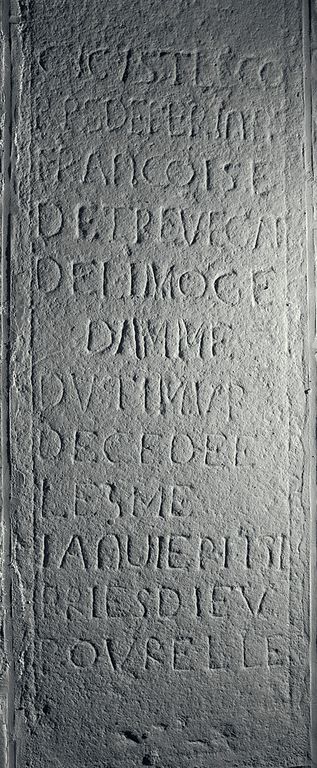 CI GIST LE CO
RPS DE FEBRINR
FRANCOISE
DE TREVEGAT
DE LIMOGE
DAMME
DV TIMVR
DECEDEE
LE 5ME
IANVIER 1751
PRIES DIEV
POVR ELLE